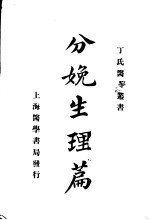 丁氏醫學叢書
分娩生理篇
上海醫學書局發行